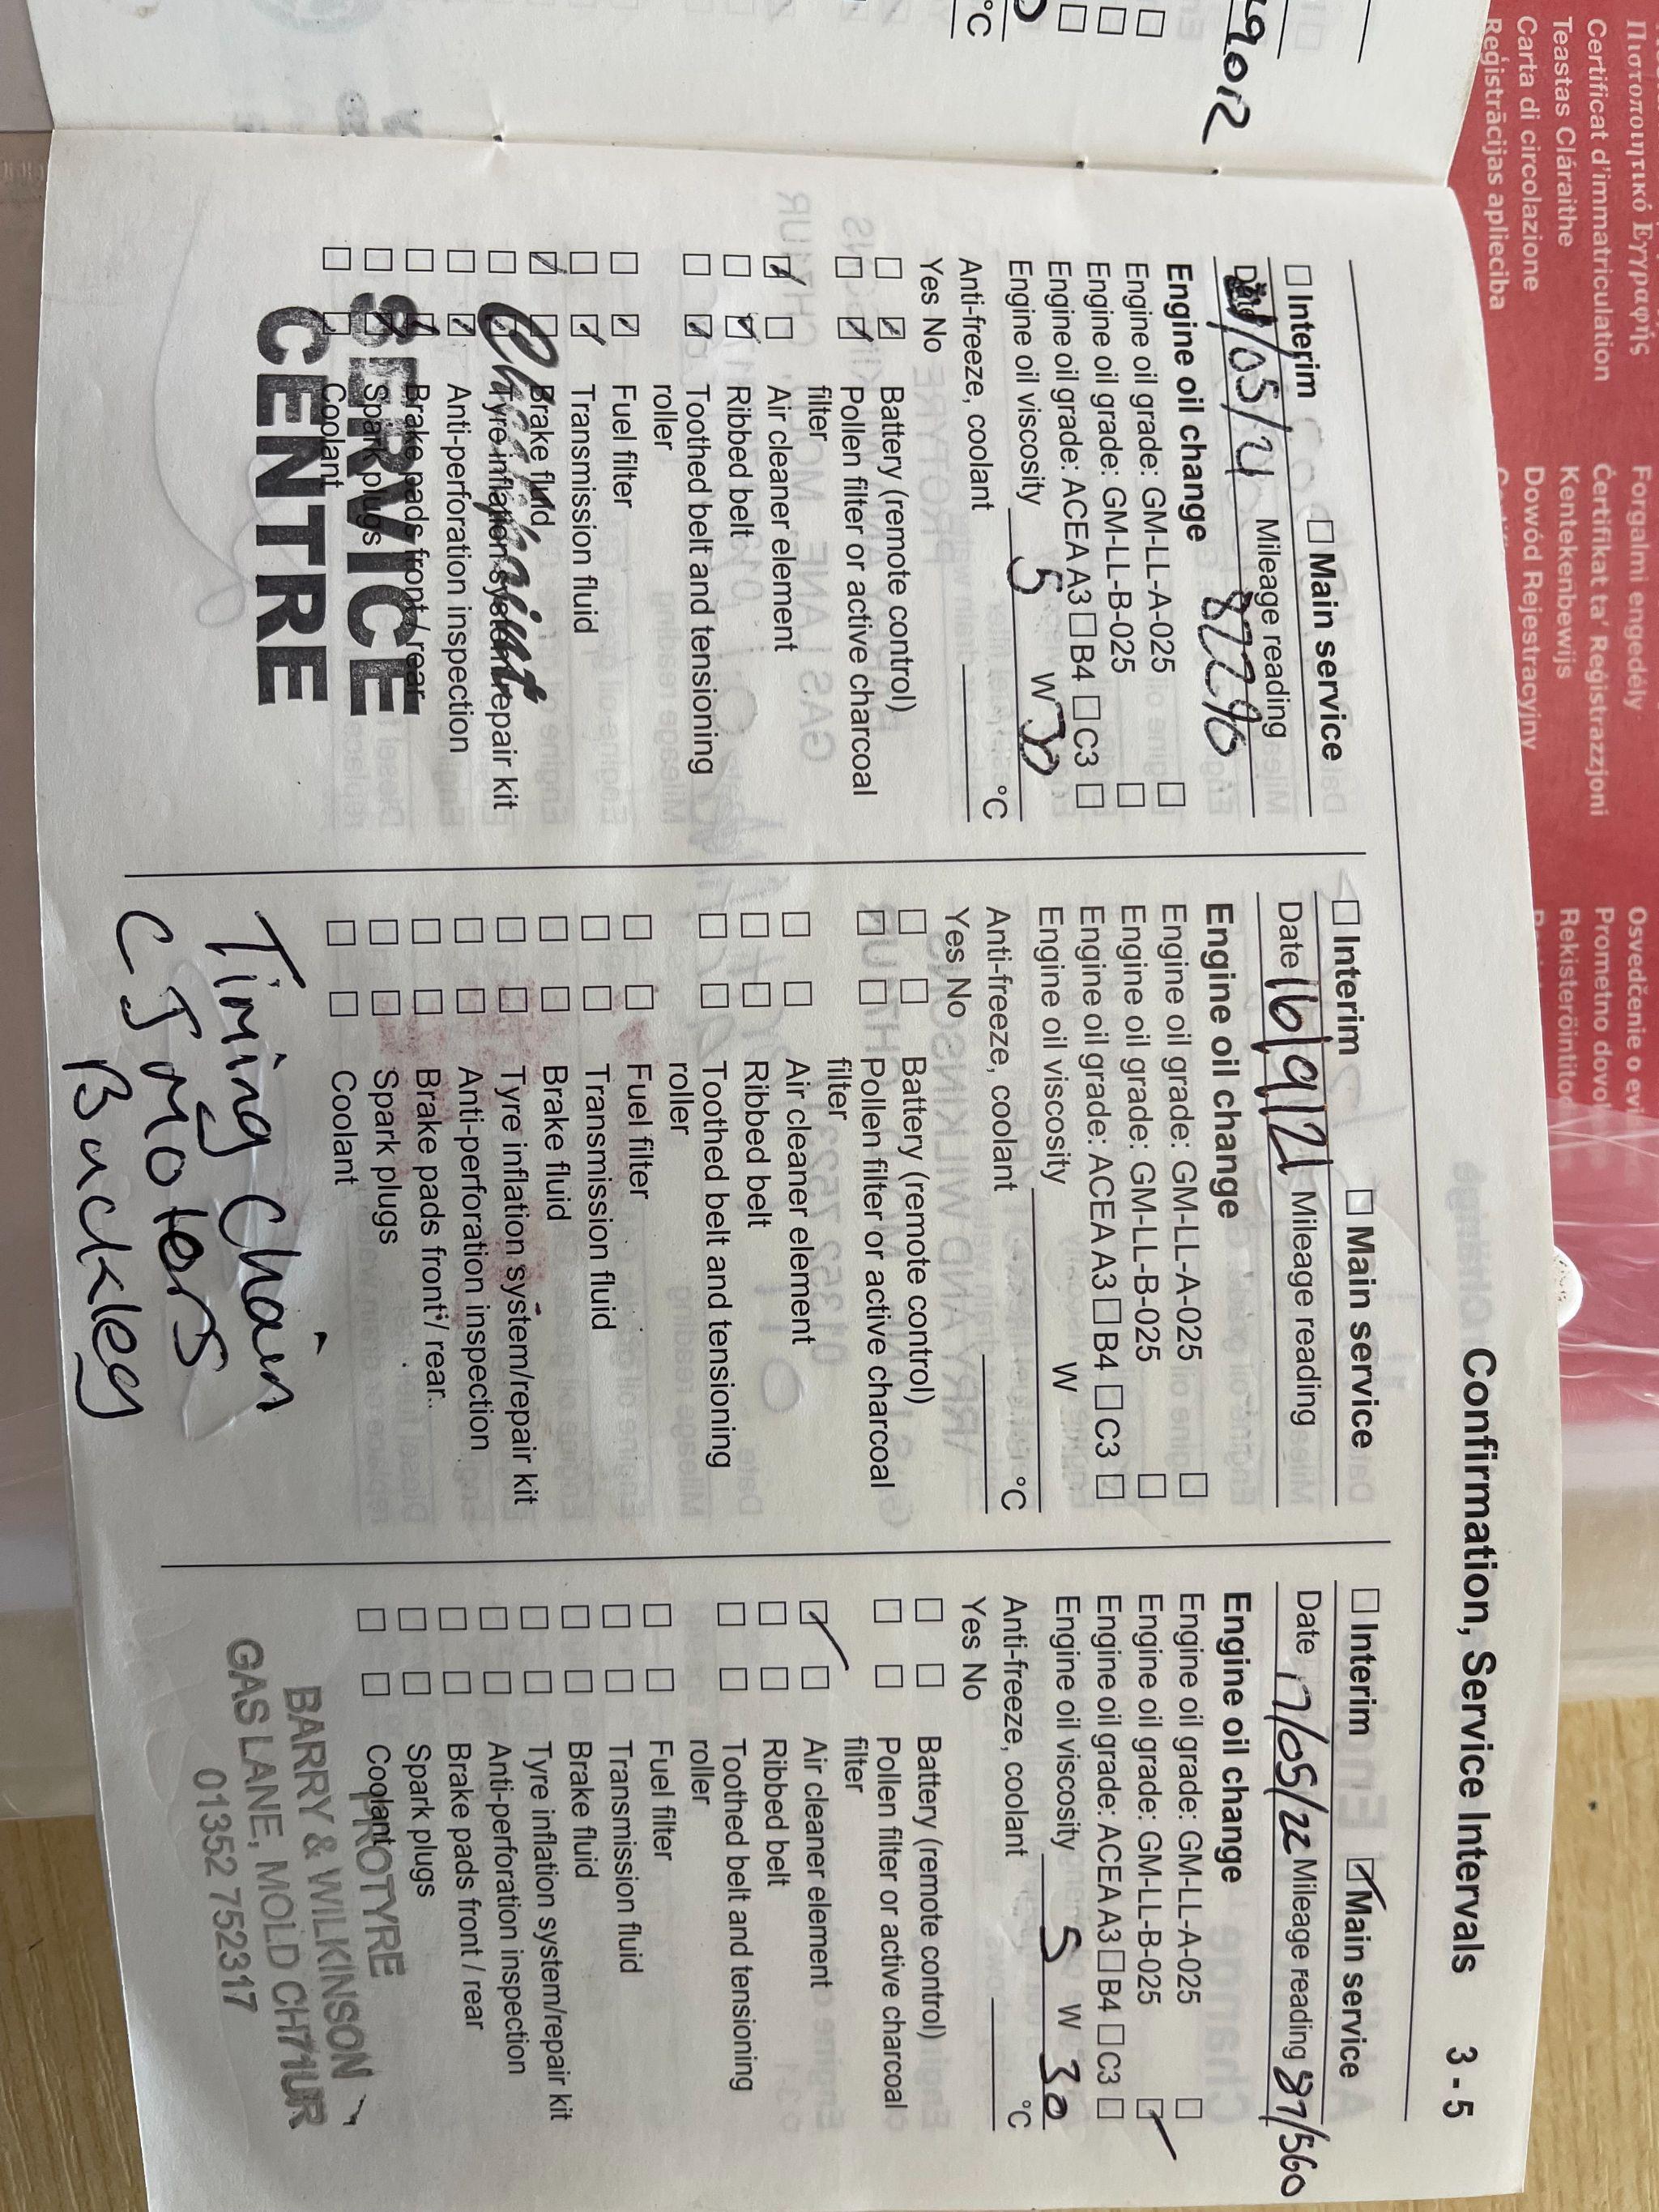 Confirmation, Service Intervals 3 - 5
☐ Interim ☐ Main service
/05/21 Mileage reading
Engine oil change
Engine oil grade: GM-LL-A-025 ☐
Engine oil grade: GM-LL-B-025 ☐
Engine oil grade: ACEA A3 ☐ B4 ☐ C3 ☐
Engine oil viscosity 5 W 30
Anti-freeze, coolant °C
Yes No
☐ ☑ Battery (remote control)
☐ ☑ Pollen filter or active charcoal
filter
☑ ☐ Air cleaner element
☐ ☑ Ribbed belt
☐ ☑ Toothed belt and tensioning
roller
☐ ☑ Fuel filter
☐ ☑ Transmission fluid
☑ ☐ Brake fluid
☐ ☑ Tyre inflation system/repair kit
☐ ☑ Anti-perforation inspection
☐ ☑ Brake pads front / rear
☐ ☑ Spark plugs
☐ ☑ Coolant
SERVICE
CENTRE
☐ Interim ☐ Main service
Date 16/9/21 Mileage reading
Engine oil change
Engine oil grade: GM-LL-A-025 ☐
Engine oil grade: GM-LL-B-025 ☐
Engine oil grade: ACEA A3 ☐ B4 ☐ C3 ☐
Engine oil viscosity W
Anti-freeze, coolant °C
Yes No
☐ ☐ Battery (remote control)
☐ ☐ Pollen filter or active charcoal
filter
☐ ☐ Air cleaner element
☐ ☐ Ribbed belt
☐ ☐ Toothed belt and tensioning
roller
☐ ☐ Fuel filter
☐ ☐ Transmission fluid
☐ ☐ Brake fluid
☐ ☐ Tyre inflation system/repair kit
☐ ☐ Anti-perforation inspection
☐ ☐ Brake pads front / rear
☐ ☐ Spark plugs
☐ ☐ Coolant
Timing Chain
C J Motors
Buckley
☐ Interim ☑ Main service
Date 17/05/22 Mileage reading 87/560
Engine oil change
Engine oil grade: GM-LL-A-025 ☐
Engine oil grade: GM-LL-B-025 ☑
Engine oil grade: ACEA A3 ☐ B4 ☐ C3 ☐
Engine oil viscosity 5 W 30
Anti-freeze, coolant °C
Yes No
☐ ☐ Battery (remote control)
☐ ☐ Pollen filter or active charcoal
filter
☑ ☐ Air cleaner element
☐ ☐ Ribbed belt
☐ ☐ Toothed belt and tensioning
roller
☐ ☐ Fuel filter
☐ ☐ Transmission fluid
☐ ☐ Brake fluid
☐ ☐ Tyre inflation system/repair kit
☐ ☐ Anti-perforation inspection
☐ ☐ Brake pads front / rear
☐ ☐ Spark plugs
☐ ☐ Coolant
PROTYRE
BARRY & WILKINSON
GAS LANE, MOLD CH7 1UR
01352 752317
°C
Πιστοποιητικό Εγγραφής
Certificat d'immatriculation
Teastas Cláraithe
Carta di circolazione
Reģistrācijas apliecība
Forgalmi engedély
Ċertifikat ta' Reġistrazzjoni
Kentekenbewijs
Dowód Rejestracyjny
Osvedčenie o evi
Prometno dovol
Rekisteröintito